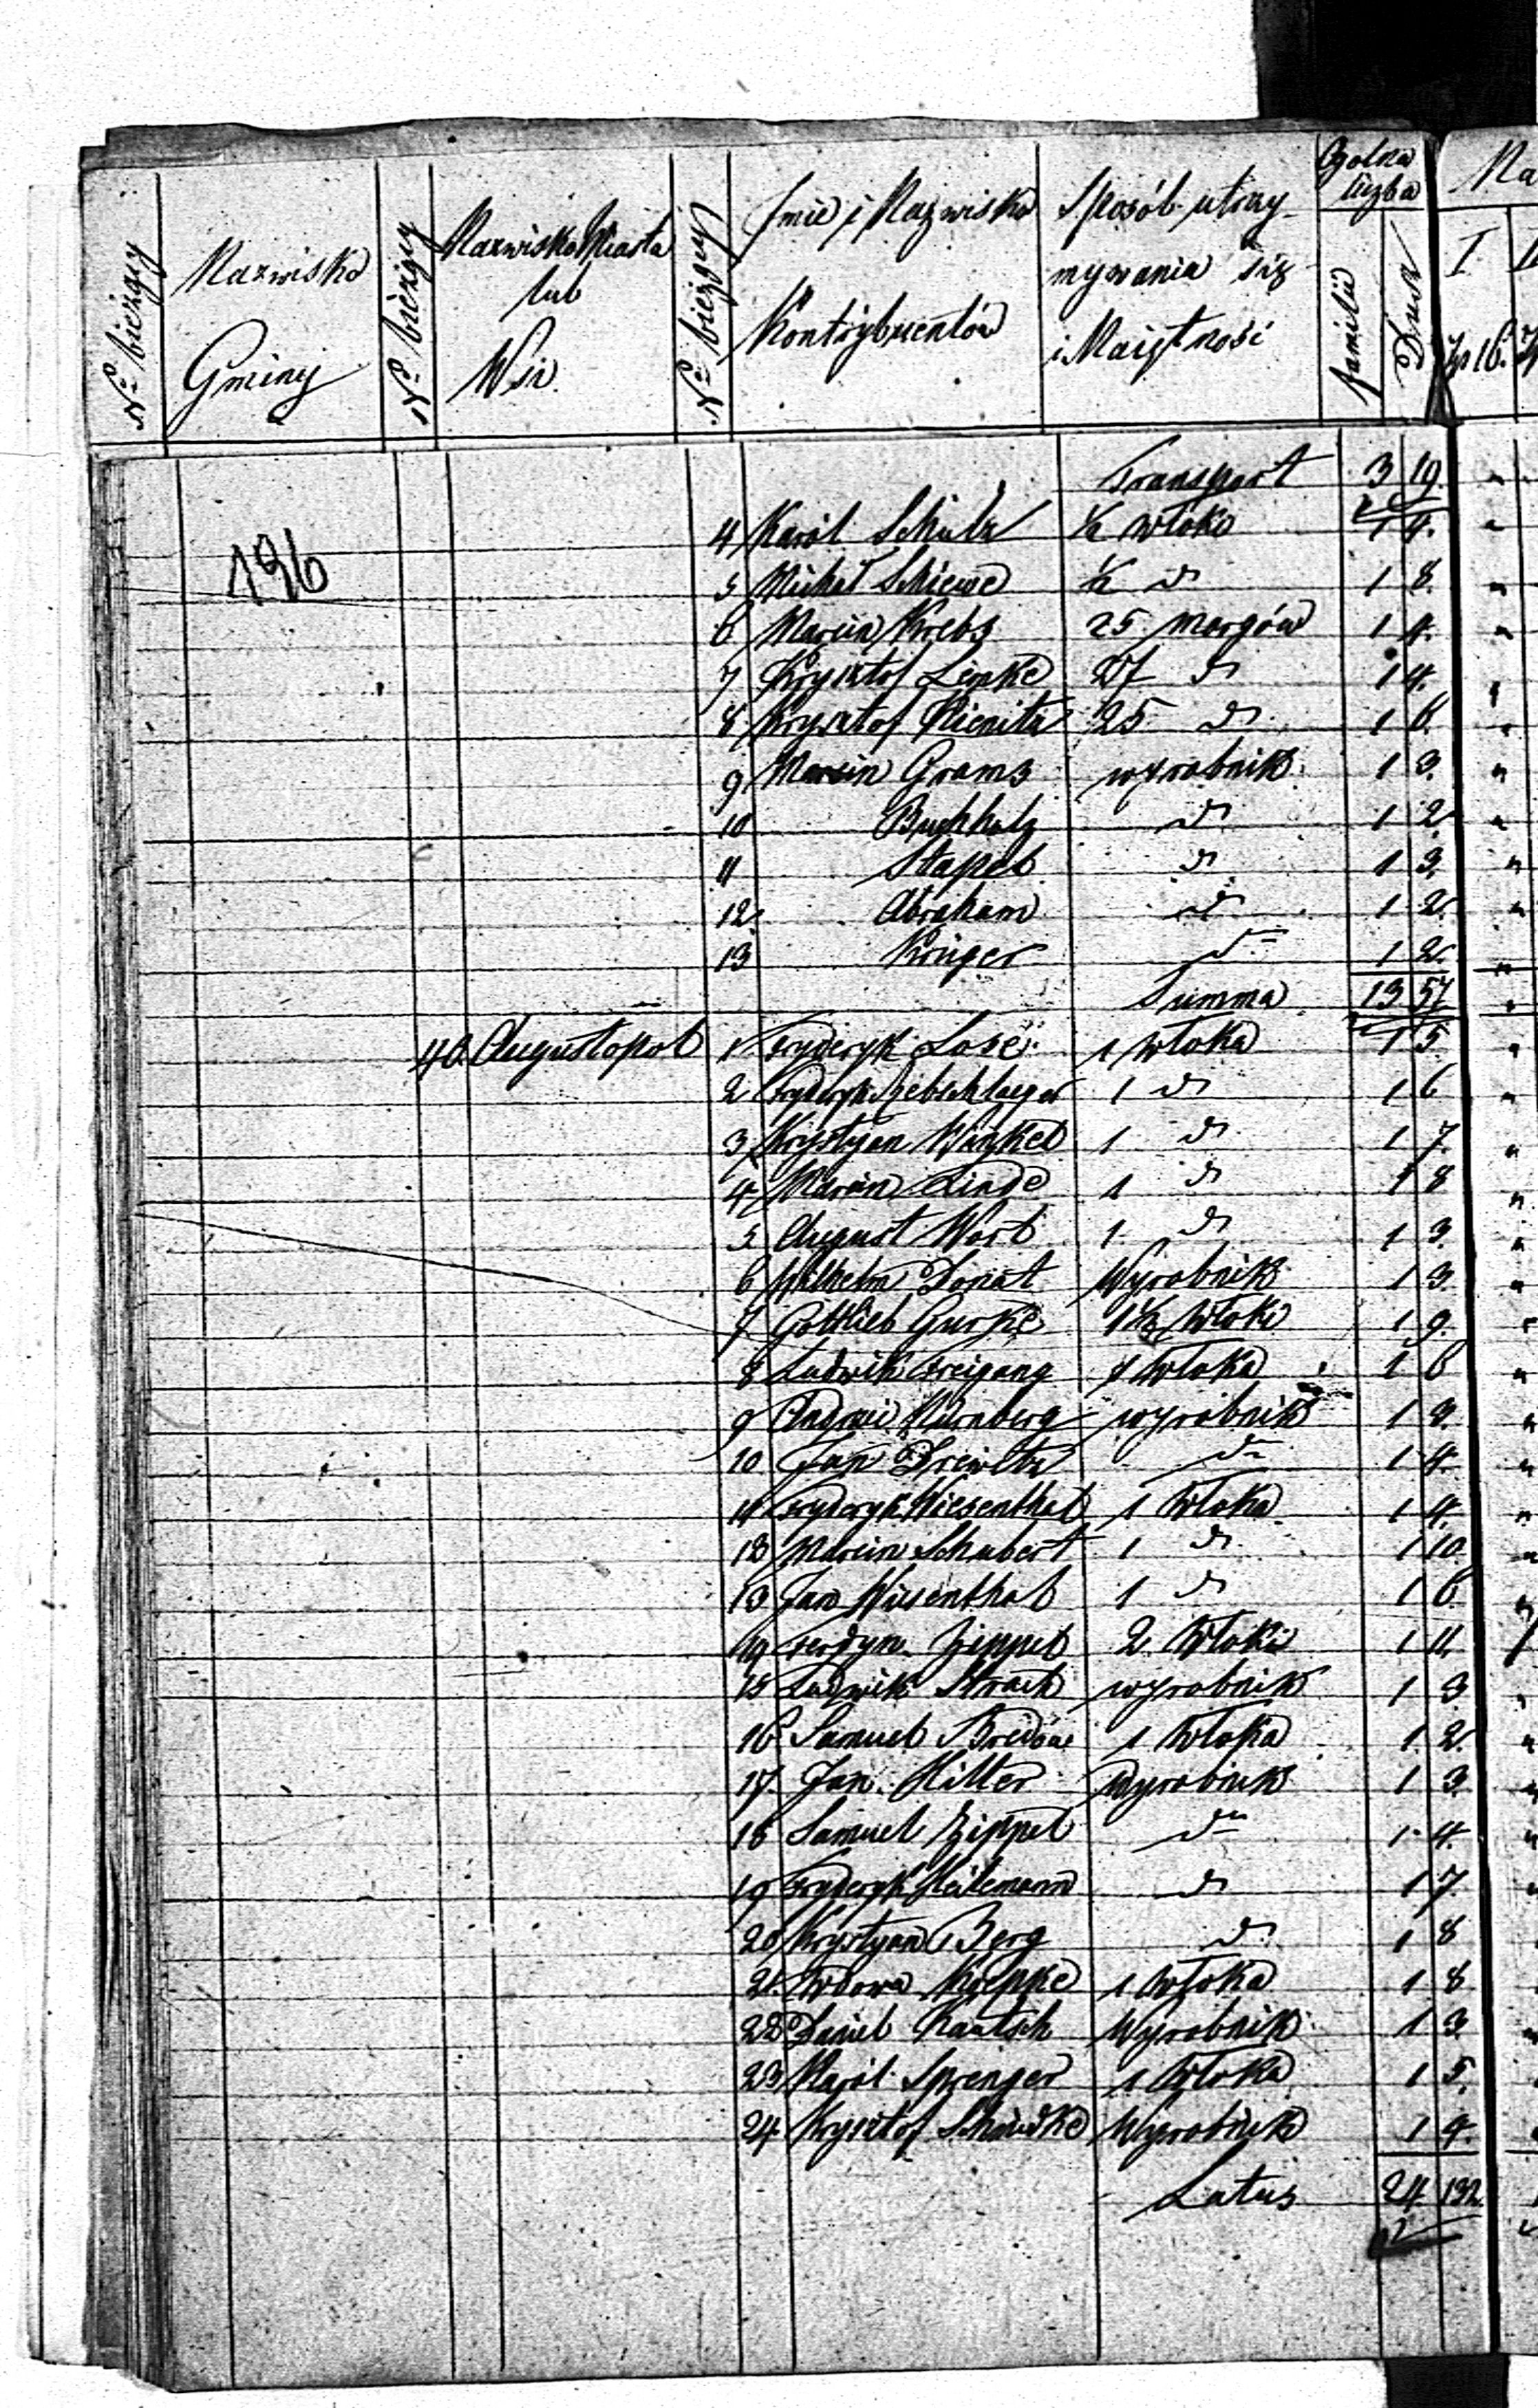 Ogólna liczba
Na
No bieżący
Nazwisko Gminy
No bieżący
Nazwisko Miasta lub Wsi
No bieżący
Imie i Nazwisko Kontrybuentów
Sposób utrzymywania się i Maiętnosć
familii
Dusz
I
196
Transport 3 19
4 Karól Schulz ½ włoka 1 4.
5 Michał Schiewe ½ d 1 8.
6 Marcin Krebs 25 morgów 1 4.
7 Krysztof Lipke d 1 4.
8 Krysztof 25 d 1 6.
9 Marcin Grams wyrobnik 1 3.
10 Buchholz d 1 2.
11 Stapel d 1 3.
12 Abraham d 1 2.
13 Krüger d 1 2.
Summa 13 57
40. Augustopol 1 Fryderyk Lose 1 włoka 1 5.
2 Fryderyk 1 d 1 6
3 Krystyan Winkel 1 d 1 7.
4 Marcin Linde 1 d 1 8
5 August 1 d 1 3.
6 Wilhelm Donat Wyrobnik 1 3.
7 Gottlieb Gurske 1½ włoki 1 9.
8 Ludwik Freigang 1 włoka 1 6
9 Andrzei Nürnberg wyrobnik 1 3.
10 Jan Drewitz d 1 4.
11 Fryderyk Wiesenthal 1 włoka 1 4.
12 Marcin Schubert 1 d 1 10.
13 Jan Wiesenthal 1 d 1 6.
14 Ferdyn. Zippel 2 włoki 1 11.
15 Ludwik Strach wyrobnik 1 3
16 Samuel Bredow 1 włoka 1 2.
17. Jan Hiller Wyrobnik 1 3.
18 Samuel Zippel d 1 4.
19 Fryderyk Heilemann d 1 7.
20 Krystyan Berg d 1 8
21. Wdowa Koepke 1 włoka 1 8
22 Daniel Kautsch Wyrobnik 1 3.
23 Karól Sprenger 1 włoka 1 5.
24 Krysztof Wyrobnik 1 4.
Latus 24 132